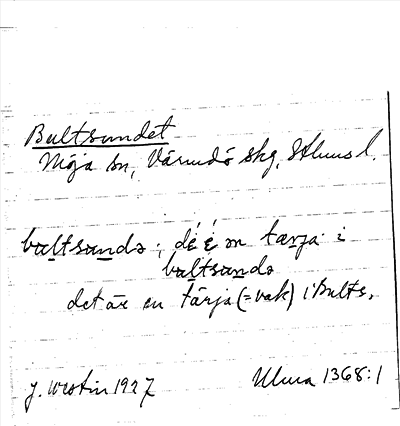 Bultsundet
Möja sn, Värmdö skg, Sthlms l.
bultsundə; dé é ən tærja i
bultsundə
det är en tärja (=vak) i Bults.
J. Westin 1927 Ulma 1368:1